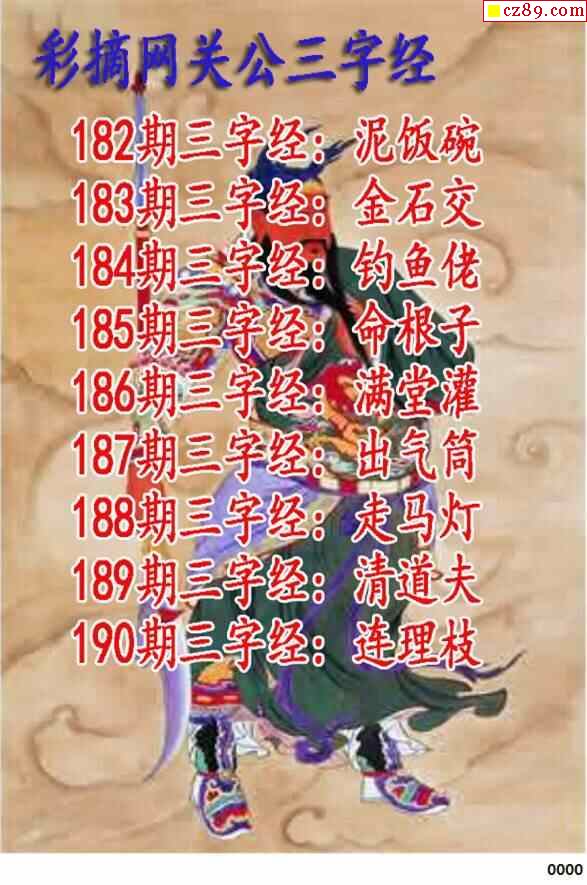 cz89.com
彩摘网关公三字经
182期三字经：泥饭碗
183期三字经：金石交
184期三字经：钓鱼佬
185期三字经：命根子
186期三字经：满堂灌
187期三字经：出气筒
188期三字经：走马灯
189期三字经：清道夫
190期三字经：连理枝
0000